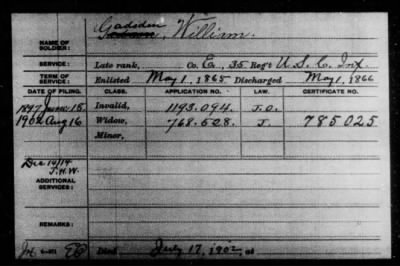 Gadsden
NAME OF SOLDIER: , William.
SERVICE: Late rank, Co. E, 35 Reg't U.S.C. Inf.
TERM OF SERVICE: Enlisted May 1, 1865 Discharged May 1, 1866
DATE OF FILING. CLASS. APPLICATION NO. LAW. CERTIFICATE NO.
1897 June 15. Invalid, 1193.094. J.O.
1902 Aug 16 Widow, 768.528. J. 785025
Minor,
Dec 14/14
J.H.W.
ADDITIONAL SERVICES:
REMARKS:
Died July 17, 1902, at